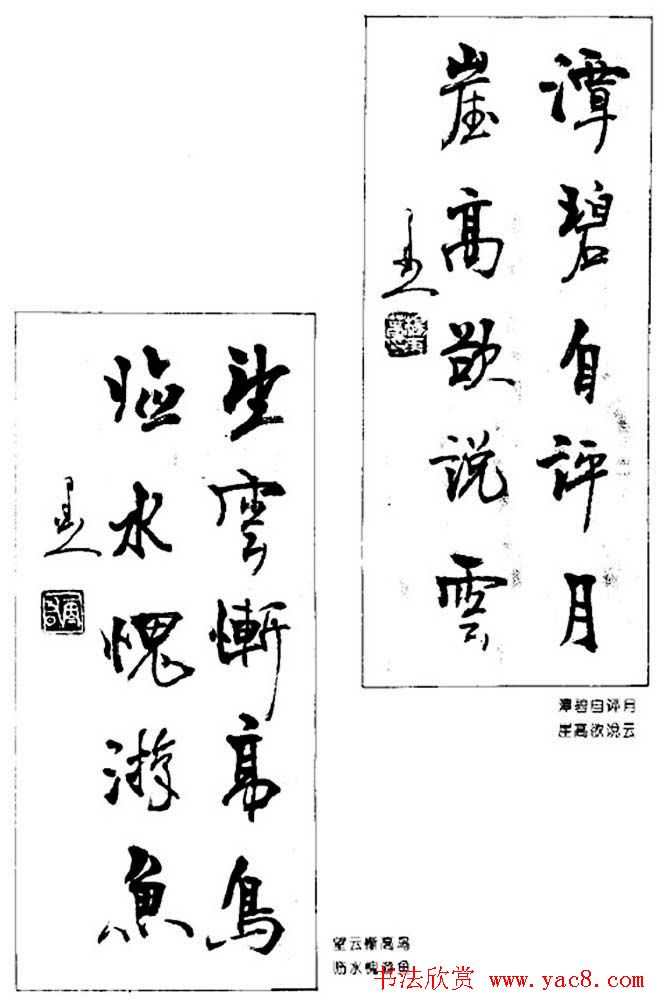 潭碧自评月
崖高欲说雲
潭碧自评月
崖高欲说云
望雲慚高鳥
临水愧游魚
望云惭高鸟
临水愧游鱼
书法欣赏 www.yac8.com